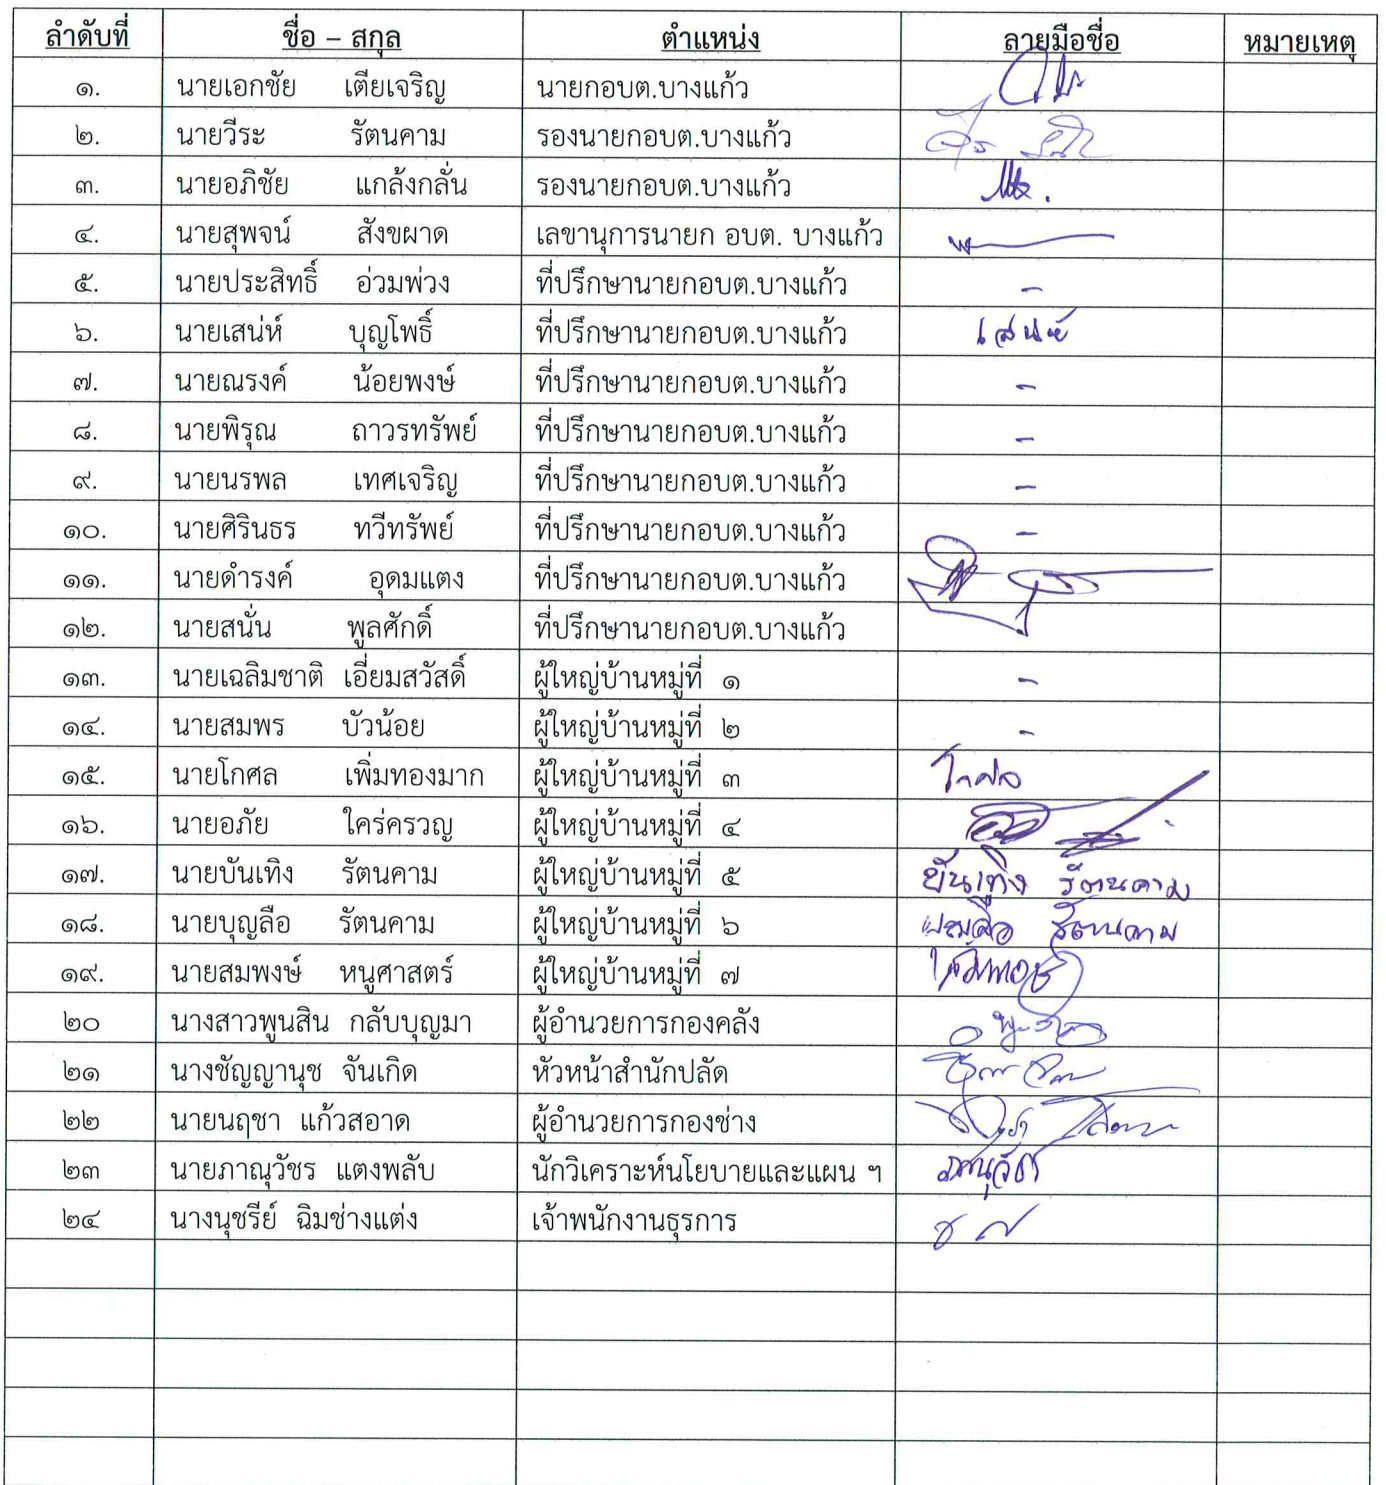 ลำดับที่ ชื่อ – สกุล ตำแหน่ง ลายมือชื่อ หมายเหตุ
๑. นายเอกชัย เตียเจริญ นายกอบต.บางแก้ว
๒. นายวีระ รัตนคาม รองนายกอบต.บางแก้ว
๓. นายอภิชัย แกล้งกลั่น รองนายกอบต.บางแก้ว
๔. นายสุพจน์ สังขผาด เลขานุการนายก อบต. บางแก้ว
๕. นายประสิทธิ์ อ่วมพ่วง ที่ปรึกษานายกอบต.บางแก้ว -
๖. นายเสน่ห์ บุญโพธิ์ ที่ปรึกษานายกอบต.บางแก้ว เสน่ห์
๗. นายณรงค์ น้อยพงษ์ ที่ปรึกษานายกอบต.บางแก้ว -
๘. นายพิรุณ ถาวรทรัพย์ ที่ปรึกษานายกอบต.บางแก้ว -
๙. นายนรพล เทศเจริญ ที่ปรึกษานายกอบต.บางแก้ว -
๑๐. นายศิรินธร ทวีทรัพย์ ที่ปรึกษานายกอบต.บางแก้ว -
๑๑. นายดำรงค์ อุดมแตง ที่ปรึกษานายกอบต.บางแก้ว
๑๒. นายสนั่น พูลศักดิ์ ที่ปรึกษานายกอบต.บางแก้ว
๑๓. นายเฉลิมชาติ เอี่ยมสวัสดิ์ ผู้ใหญ่บ้านหมู่ที่ ๑ -
๑๔. นายสมพร บัวน้อย ผู้ใหญ่บ้านหมู่ที่ ๒ -
๑๕. นายโกศล เพิ่มทองมาก ผู้ใหญ่บ้านหมู่ที่ ๓ โกศล
๑๖. นายอภัย ใคร่ครวญ ผู้ใหญ่บ้านหมู่ที่ ๔
๑๗. นายบันเทิง รัตนคาม ผู้ใหญ่บ้านหมู่ที่ ๕ บันเทิง รัตนคาม
๑๘. นายบุญลือ รัตนคาม ผู้ใหญ่บ้านหมู่ที่ ๖ บุญลือ รัตนคาม
๑๙. นายสมพงษ์ หนูศาสตร์ ผู้ใหญ่บ้านหมู่ที่ ๗
๒๐ นางสาวพูนสิน กลับบุญมา ผู้อำนวยการกองคลัง
๒๑ นางชัญญานุช จันเกิด หัวหน้าสำนักปลัด
๒๒ นายนฤชา แก้วสอาด ผู้อำนวยการกองช่าง
๒๓ นายภาณุวัชร แตงพลับ นักวิเคราะห์นโยบายและแผน ฯ
๒๔ นางนุชรีย์ ฉิมช่างแต่ง เจ้าพนักงานธุรการ